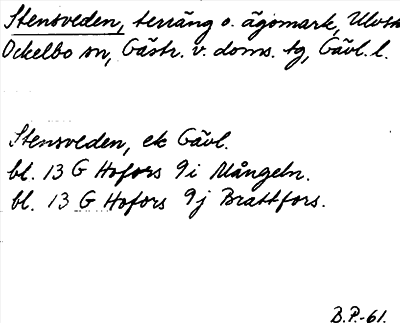 Stensveden, terräng o. ägomark,
Ockelbo sn, Gästr. v. doms. tg, Gävl. l.
Stensveden, ek Gävl.
bl. 13 G Hofors 9i Mångeln.
bl. 13 G Hofors 9j Brattfors.
B.P.-61.